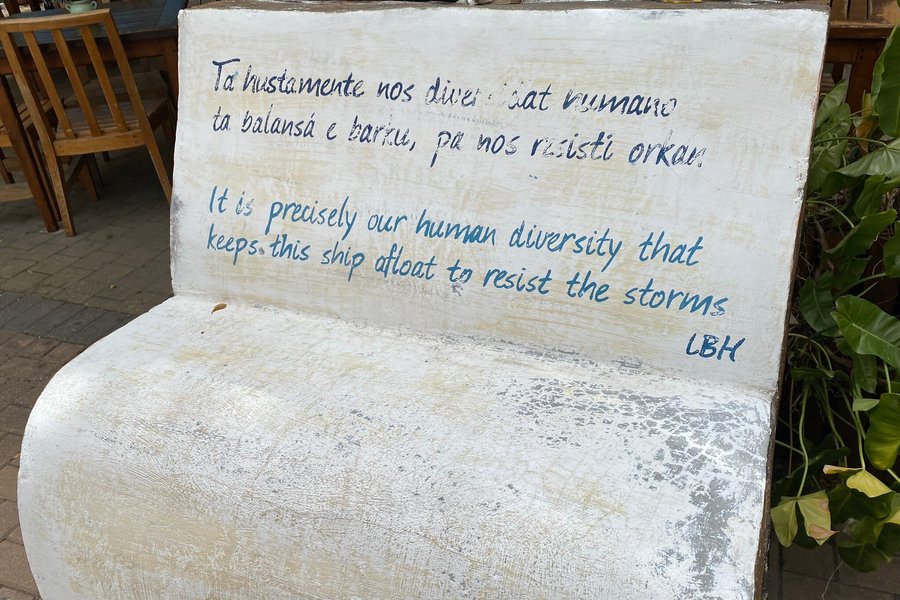 Ta hustamente nos humano
ta balansá e barku, pa nos resisti orkan
It is precisely our human diversity that
keeps this ship afloat to resist the storms
LBH